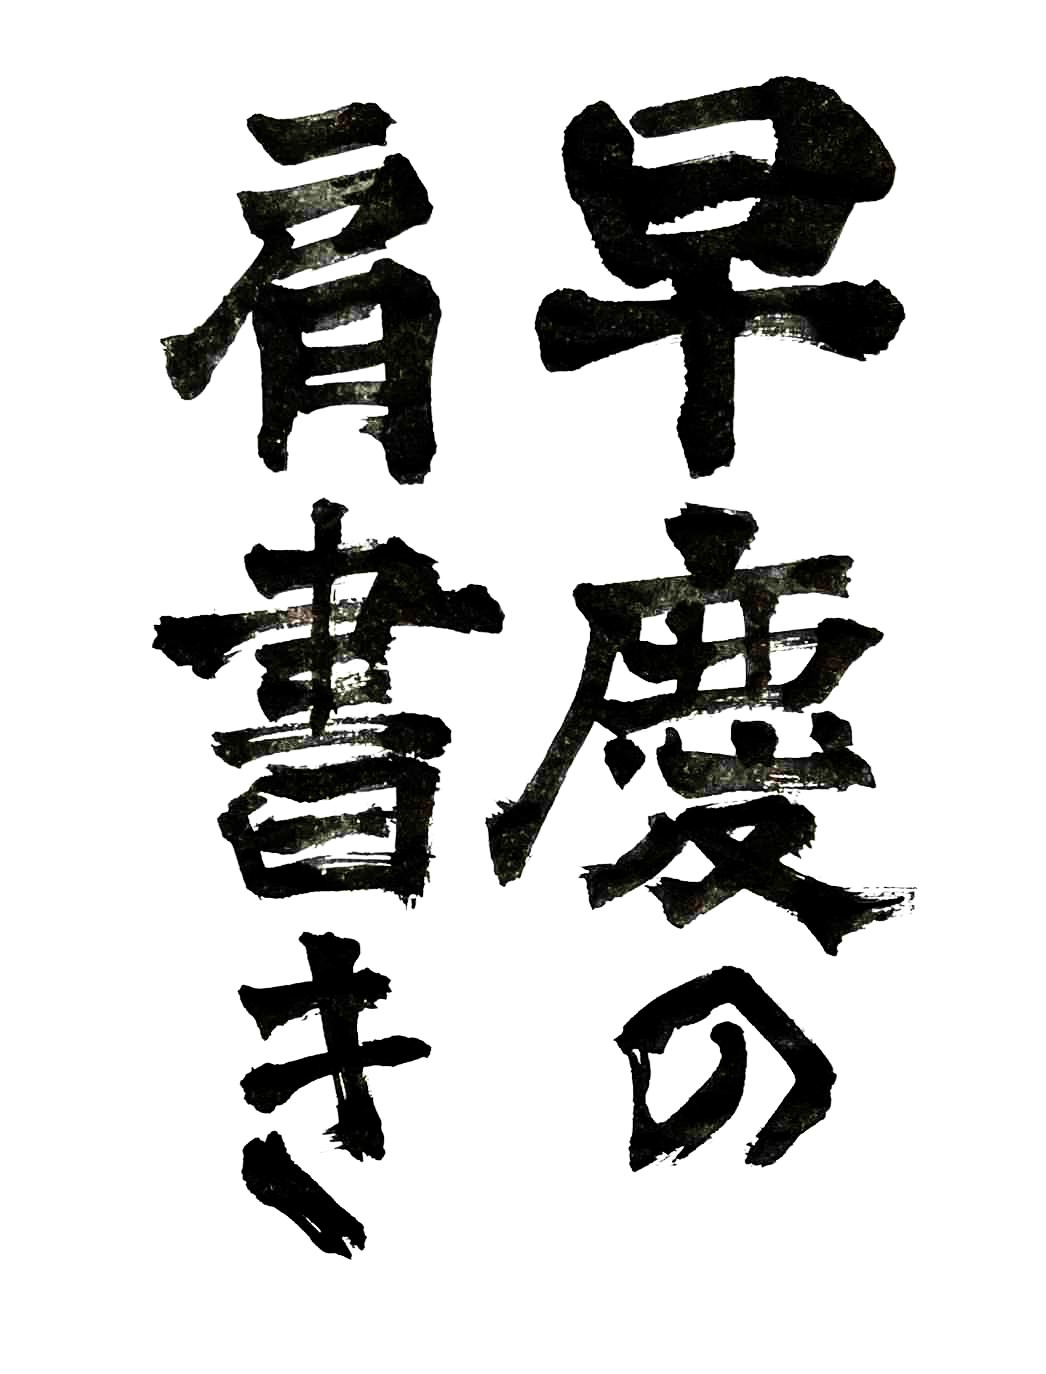 早慶の
肩書き